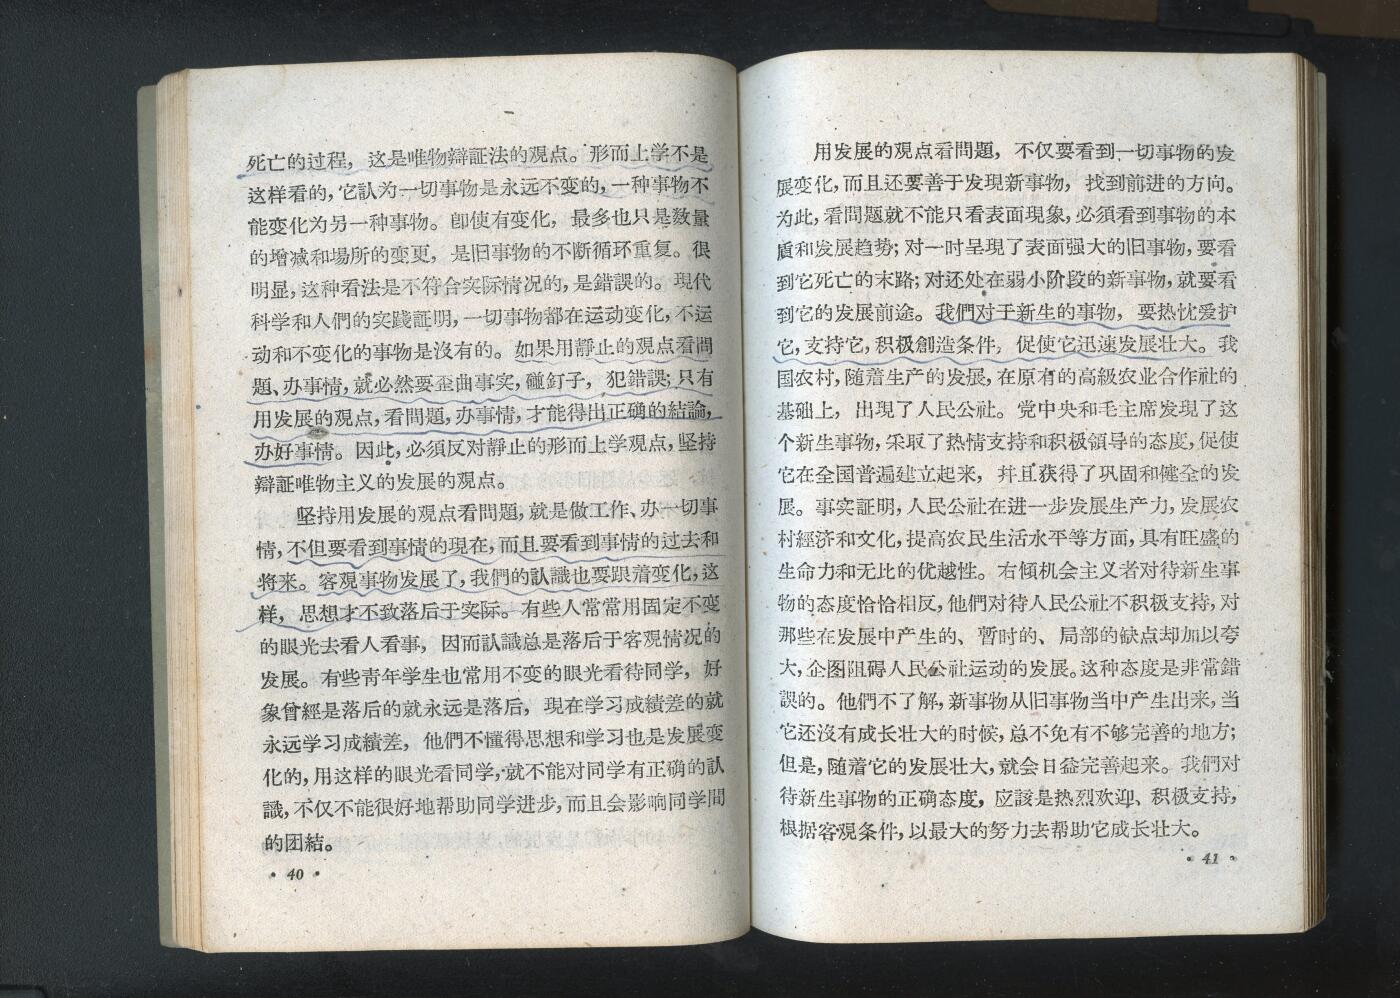 死亡的过程，这是唯物辯証法的观点。形而上学不是
这样看的，它認为一切事物是永远不变的，一种事物不
能变化为另一种事物。卽使有变化，最多也只是数量
的增减和場所的变更，是旧事物的不断循环重复。很
明显，这种看法是不符合实际情况的，是錯誤的。現代
科学和人們的实践証明，一切事物都在运动变化，不运
动和不变化的事物是沒有的。如果用靜止的观点看問
題、办事情，就必然要歪曲事实，碰釘子，犯錯誤；只有
用发展的观点，看問題，办事情，才能得出正确的結論，
办好事情。因此，必須反对靜止的形而上学观点，坚持
辯証唯物主义的发展的观点。
坚持用发展的观点看問題，就是做工作、办一切事
情，不但要看到事情的現在，而且要看到事情的过去和
将来。客观事物发展了，我們的認識也要跟着变化，这
样，思想才不致落后于实际。有些人常常用固定不变
的眼光去看人看事，因而認識总是落后于客观情况的
发展。有些青年学生也常用不变的眼光看待同学，好
象曾經是落后的就永远是落后，現在学习成績差的就
永远学习成績差，他們不懂得思想和学习也是发展变
化的，用这样的眼光看同学，就不能对同学有正确的認
識，不仅不能很好地帮助同学进步，而且会影响同学間
的团結。
• 40 •
用发展的观点看問題，不仅要看到一切事物的发
展变化，而且还要善于发現新事物，找到前进的方向。
为此，看問題就不能只看表面現象，必須看到事物的本
质和发展趋势；对一时呈現了表面强大的旧事物，要看
到它死亡的末路；对还处在弱小阶段的新事物，就要看
到它的发展前途。我們对于新生的事物，要热忱爱护
它，支持它，积极創造条件，促使它迅速发展壮大。我
国农村，随着生产的发展，在原有的高級农业合作社的
基础上，出現了人民公社。党中央和毛主席发現了这
个新生事物，采取了热情支持和积极領导的态度，促使
它在全国普遍建立起来，幷且获得了巩固和健全的发
展。事实証明，人民公社在进一步发展生产力，发展农
村經济和文化，提高农民生活水平等方面，具有旺盛的
生命力和无比的优越性。右傾机会主义者对待新生事
物的态度恰恰相反，他們对待人民公社不积极支持，对
那些在发展中产生的、暫时的、局部的缺点却加以夸
大，企图阻碍人民公社运动的发展。这种态度是非常錯
誤的。他們不了解，新事物从旧事物当中产生出来，当
它还沒有成长壮大的时候，总不免有不够完善的地方；
但是，随着它的发展壮大，就会日益完善起来。我們对
待新生事物的正确态度，应該是热烈欢迎、积极支持，
根据客观条件，以最大的努力去帮助它成长壮大。
• 41 •